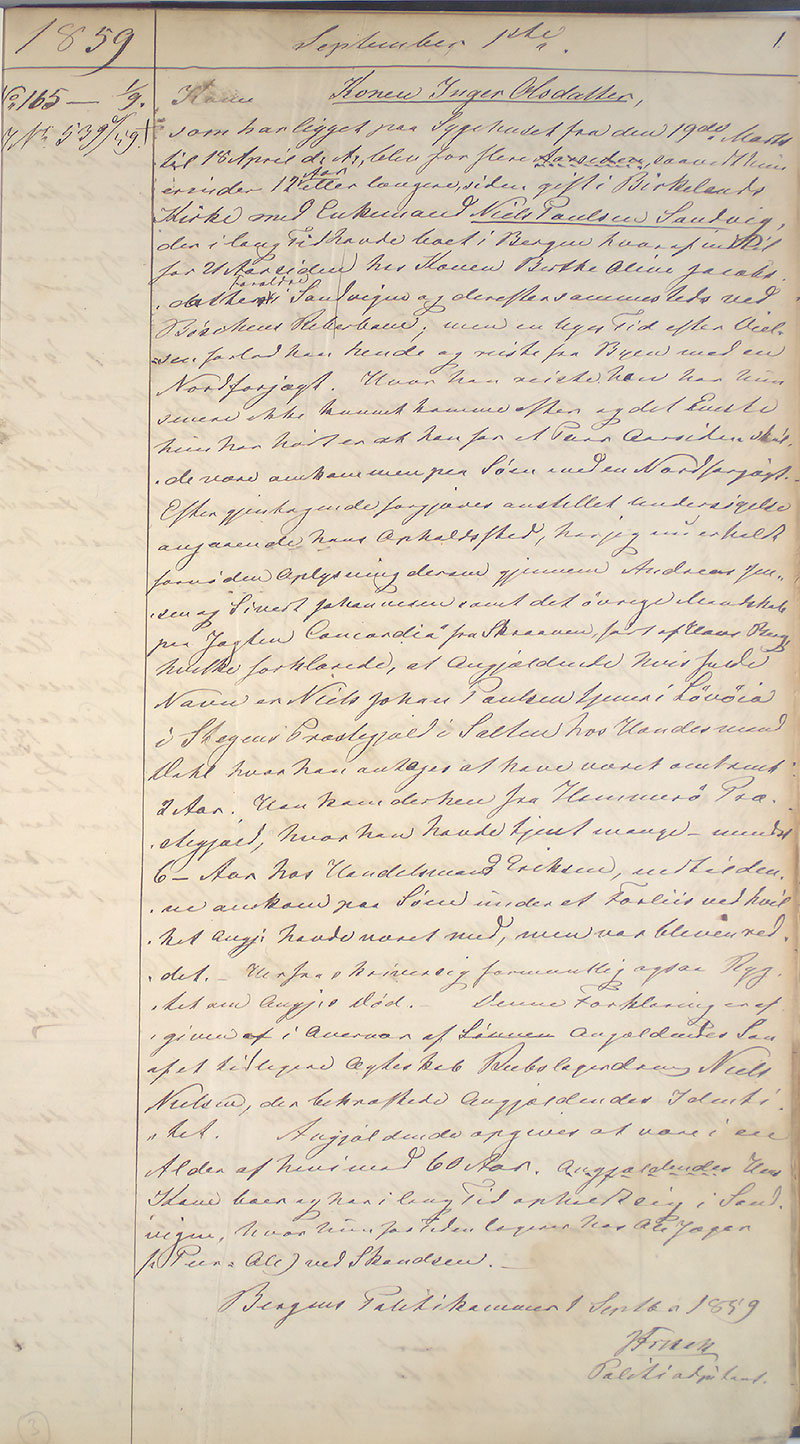 1859 September 1ste. 1
No 165 — 1/9. Konen Inger Olsdatter,
J No 539
som har ligget paa Sygehuset fra den 19de Marts
til 18 April d. A., blev for flere Aar siden,
12 Aar eller længere siden gift i Birkelands
Kirke med Enkemand Niels Paulsen Sandvig,
der i lang Tid havde boet i Bergen hvoraf indtil
for Aar siden hos Konen Berthe Oline Jacobs-
datters Forældre i Sandvigen og derefter sammesteds ved
Reberbane; men en Uges Tid efter Viel-
sen forlod han hende og reiste fra Byen med en
Nordfarjagt. Hvor han reiste hen har hun
senere ikke kunnet komme efter og det Eneste
hun har hørt er at han for et Par Aar siden skul-
de være omkommen paa Søen med en Nordfarjagt.
Efter gjentagende forgjæves anstillet Undersøgelse
angaaende hans Opholdssted, har jeg nu erholdt
fornøden Oplysning derom gjennem Andreas Jen-
sen og Sivert Johannesen samt det øvrige Mandskab
paa Jagten "Concordia" fra Skraaven, ført af Hans
hvilke forklarede, at Angjældende hvis fulde
Navn er Niels Johan Paulsen tjener i Løvøia
i Stegens Præstegjæld i Salten hos Handelsmand
Dahl hvor han antages at have været omtrent
2 Aar. Han kom derhen fra Hammerø Præ-
stegjæld, hvor han havde tjent mange – mindst
6 – Aar hos Handelsmand Eriksen,
omkom paa Søen under et Forliis ved hvil-
ket Angj: havde været med, men var bleven red-
det. – Herfra skriver sig formentlig ogsaa Ryg-
tet om Angj:s Død. – Denne Forklaring er af-
given i Overvær af Sønnen Angjældendes Søn
af et tidligere Ægteskab Rebslagerdreng Niels
Nielsen, der bekræftede Angjældendes Identi-
tet. Angjældende opgives at være i en
Alder af henimod 60 Aar. Angjældendes Hans
Kone boer og har i lang Tid opholdt sig i Sand-
vigen, hvor hun for Tiden logerer hos Ole Jæger
(Peer Ole) ved Skandsen. –
Bergens Politikammer 1 Septbr 1859
Politiadjutant.
3